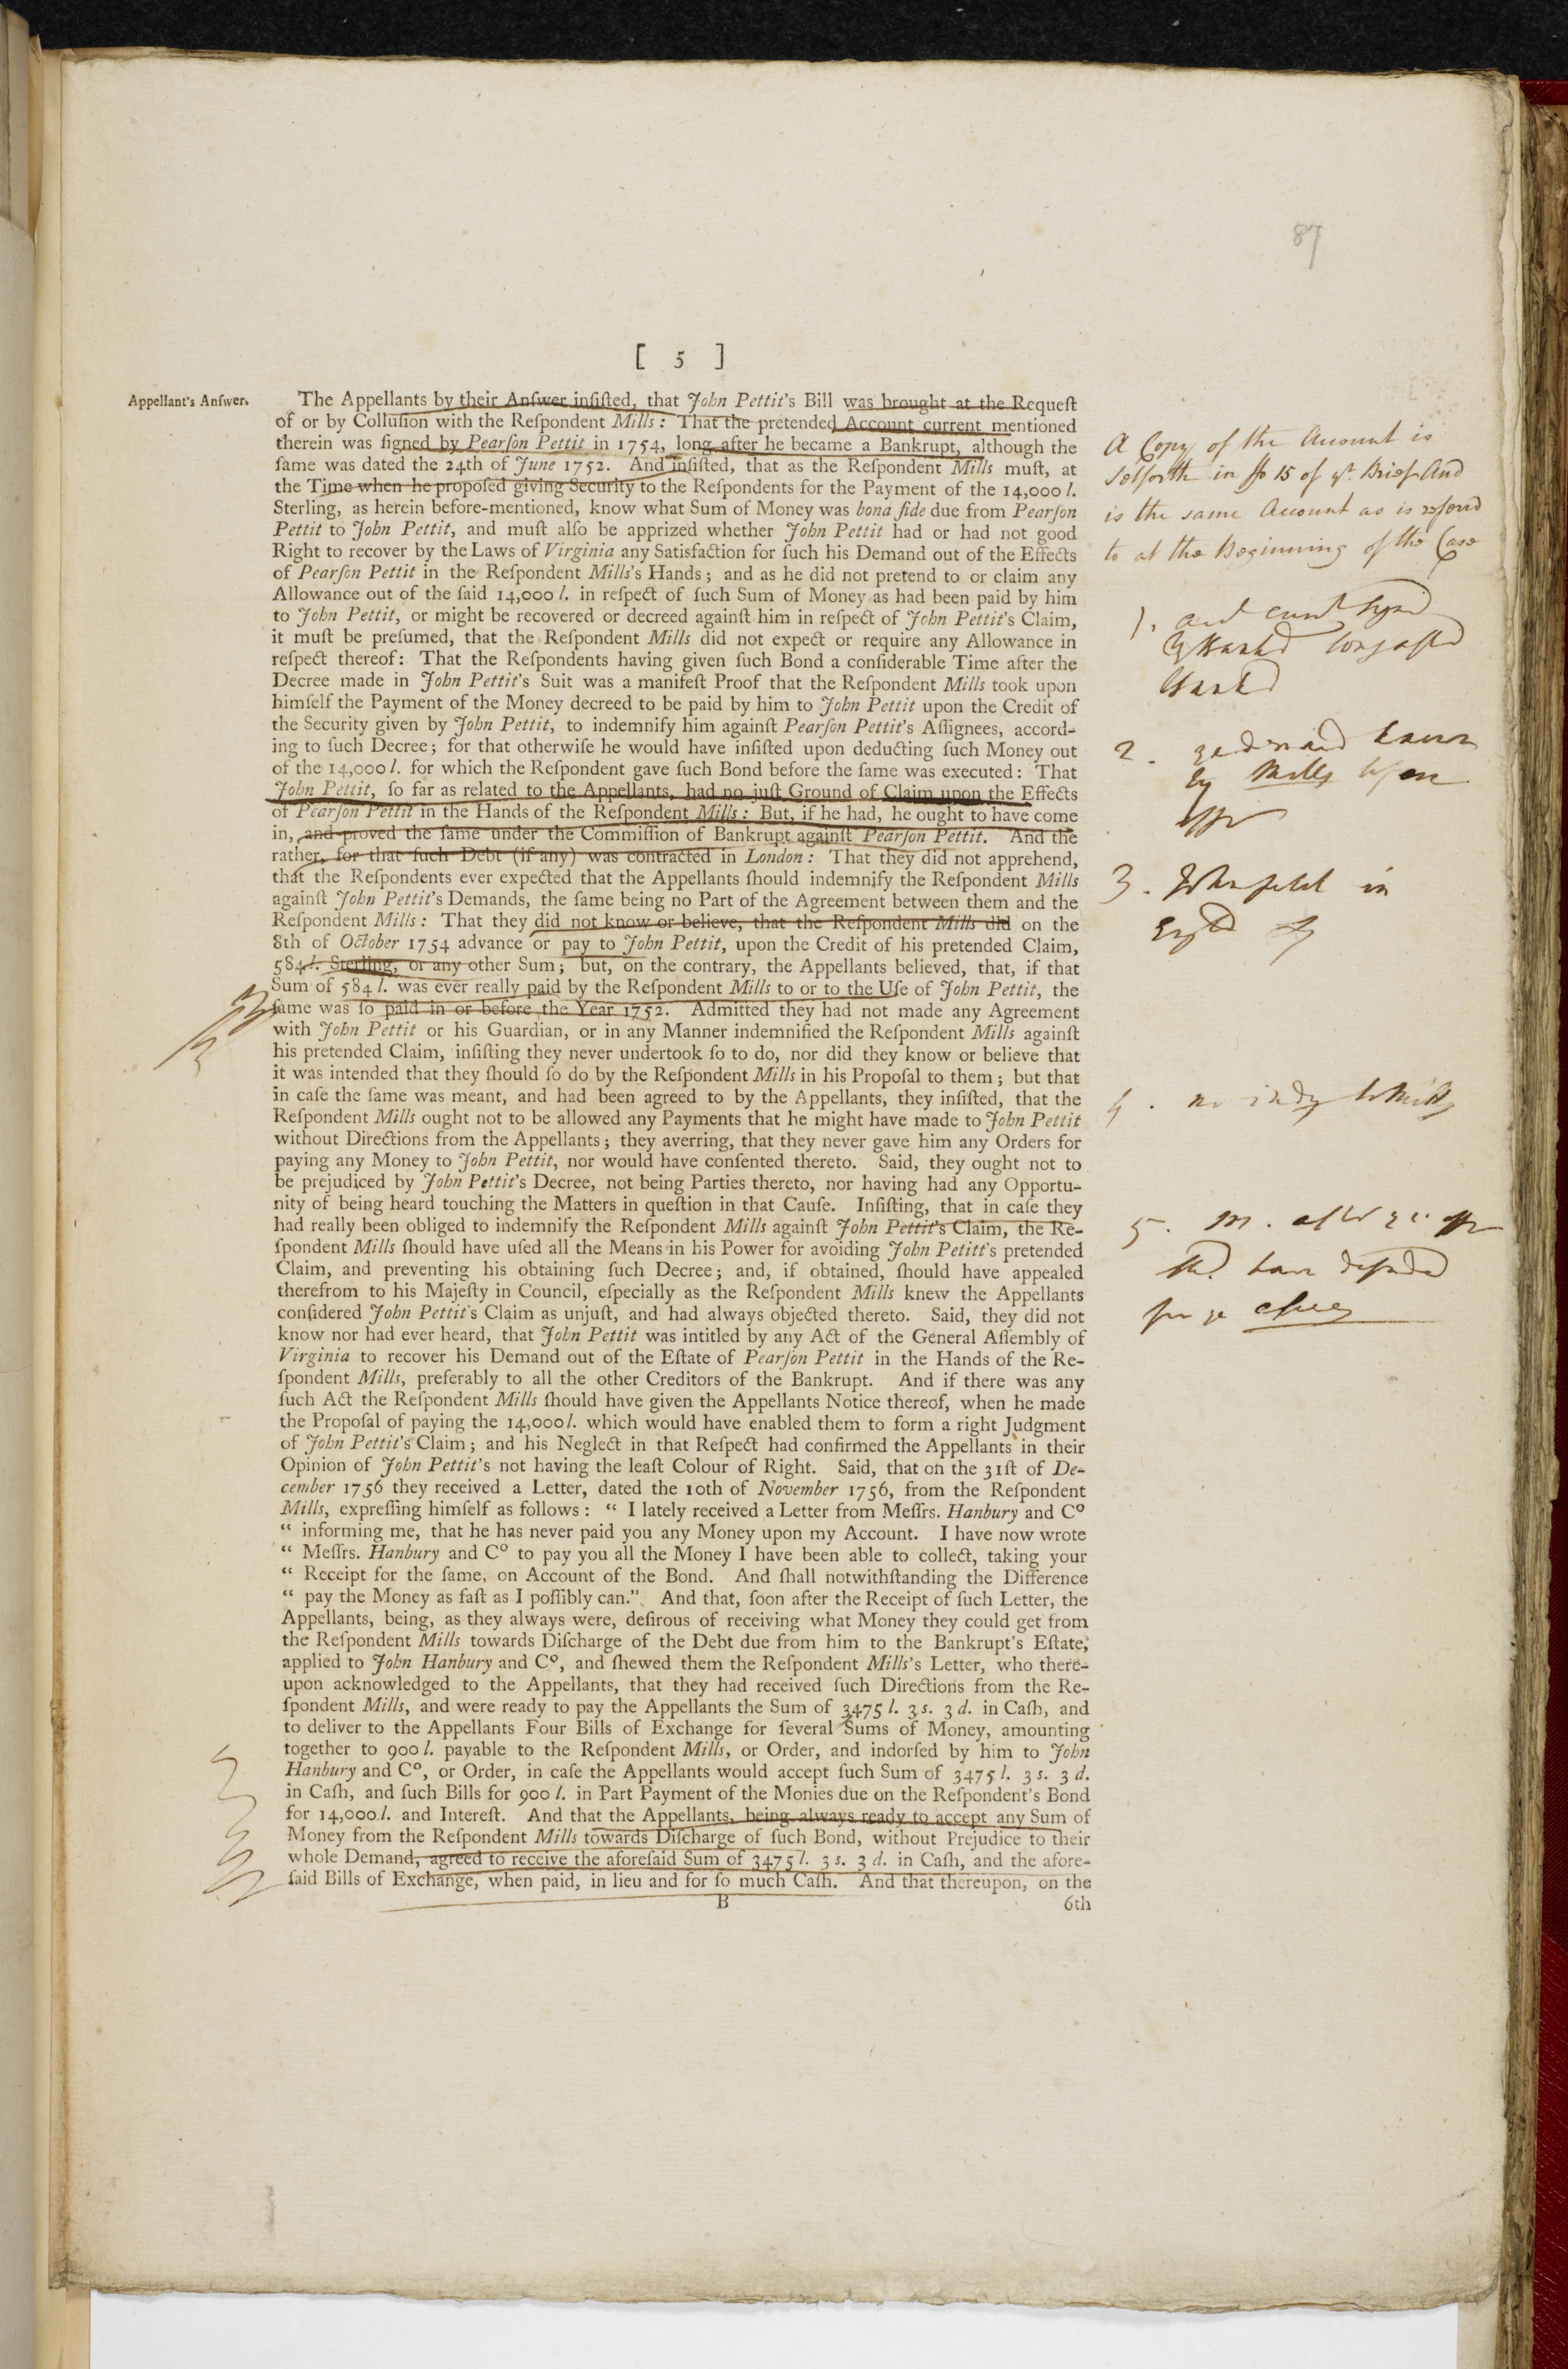 87
[ 5 ]
Appellant's Anſwer.
The Appellants by their Anſwer inſiſted, that John Pettit's Bill was brought at the Requeſt
of or by Colluſion with the Reſpondent Mills: That the pretended Account current mentioned
therein was ſigned by Pearſon Pettit in 1754, long after he became a Bankrupt, although the
ſame was dated the 24th of June 1752. And inſiſted, that as the Reſpondent Mills muſt, at
the Time when he propoſed giving Security to the Reſpondents for the Payment of the 14,000 l.
Sterling, as herein before-mentioned, know what Sum of Money was bona fide due from Pearſon
Pettit to John Pettit, and muſt alſo be apprized whether John Pettit had or had not good
Right to recover by the Laws of Virginia any Satisfaction for ſuch his Demand out of the Effects
of Pearſon Pettit in the Reſpondent Mills's Hands; and as he did not pretend to or claim any
Allowance out of the ſaid 14,000 l. in reſpect of ſuch Sum of Money as had been paid by him
to John Pettit, or might be recovered or decreed againſt him in reſpect of John Pettit's Claim,
it muſt be preſumed, that the Reſpondent Mills did not expect or require any Allowance in
reſpect thereof: That the Reſpondents having given ſuch Bond a conſiderable Time after the
Decree made in John Pettit's Suit was a manifeſt Proof that the Reſpondent Mills took upon
himſelf the Payment of the Money decreed to be paid by him to John Pettit upon the Credit of
the Security given by John Pettit, to indemnify him againſt Pearſon Pettit's Aſſignees, accord-
ing to ſuch Decree; for that otherwiſe he would have inſiſted upon deducting ſuch Money out
of the 14,000 l. for which the Reſpondent gave ſuch Bond before the ſame was executed: That
John Pettit, ſo far as related to the Appellants, had no juſt Ground of Claim upon the Effects
of Pearſon Pettit in the Hands of the Reſpondent Mills: But, if he had, he ought to have come
in, and proved the ſame under the Commiſſion of Bankrupt againſt Pearſon Pettit. And the
rather, for that ſuch Debt (if any) was contracted in London: That they did not apprehend,
that the Reſpondents ever expected that the Appellants ſhould indemnify the Reſpondent Mills
againſt John Pettit's Demands, the ſame being no Part of the Agreement between them and the
Reſpondent Mills: That they did not know or believe, that the Reſpondent Mills did on the
8th of October 1754 advance or pay to John Pettit, upon the Credit of his pretended Claim,
584 l. Sterling, or any other Sum; but, on the contrary, the Appellants believed, that, if that
Sum of 584 l. was ever really paid by the Reſpondent Mills to or to the Uſe of John Pettit, the
ſame was ſo paid in or before the Year 1752. Admitted they had not made any Agreement
with John Pettit or his Guardian, or in any Manner indemnified the Reſpondent Mills againſt
his pretended Claim, inſiſting they never undertook ſo to do, nor did they know or believe that
it was intended that they ſhould ſo do by the Reſpondent Mills in his Propoſal to them; but that
in caſe the ſame was meant, and had been agreed to by the Appellants, they inſiſted, that the
Reſpondent Mills ought not to be allowed any Payments that he might have made to John Pettit
without Directions from the Appellants; they averring, that they never gave him any Orders for
paying any Money to John Pettit, nor would have conſented thereto. Said, they ought not to
be prejudiced by John Pettit's Decree, not being Parties thereto, nor having had any Opportu-
nity of being heard touching the Matters in queſtion in that Cauſe. Inſiſting, that in caſe they
had really been obliged to indemnify the Reſpondent Mills againſt John Pettit's Claim, the Re-
ſpondent Mills ſhould have uſed all the Means in his Power for avoiding John Petitt's pretended
Claim, and preventing his obtaining ſuch Decree; and, if obtained, ſhould have appealed
therefrom to his Majeſty in Council, eſpecially as the Reſpondent Mills knew the Appellants
conſidered John Pettit's Claim as unjuſt, and had always objected thereto. Said, they did not
know nor had ever heard, that John Pettit was intitled by any Act of the General Aſſembly of
Virginia to recover his Demand out of the Eſtate of Pearſon Pettit in the Hands of the Re-
ſpondent Mills, preferably to all the other Creditors of the Bankrupt. And if there was any
ſuch Act the Reſpondent Mills ſhould have given the Appellants Notice thereof, when he made
the Propoſal of paying the 14,000 l. which would have enabled them to form a right Judgment
of John Pettit's Claim; and his Neglect in that Reſpect had confirmed the Appellants in their
Opinion of John Pettit's not having the leaſt Colour of Right. Said, that on the 31ſt of De-
cember 1756 they received a Letter, dated the 10th of November 1756, from the Reſpondent
Mills, expreſſing himſelf as follows: “ I lately received a Letter from Meſſrs. Hanbury and Co
“ informing me, that he has never paid you any Money upon my Account. I have now wrote
“ Meſſrs. Hanbury and Co to pay you all the Money I have been able to collect, taking your
“ Receipt for the ſame, on Account of the Bond. And ſhall notwithſtanding the Difference
“ pay the Money as faſt as I poſſibly can.” And that, ſoon after the Receipt of ſuch Letter, the
Appellants, being, as they always were, deſirous of receiving what Money they could get from
the Reſpondent Mills towards Diſcharge of the Debt due from him to the Bankrupt's Eſtate,
applied to John Hanbury and Co, and ſhewed them the Reſpondent Mills's Letter, who there-
upon acknowledged to the Appellants, that they had received ſuch Directions from the Re-
ſpondent Mills, and were ready to pay the Appellants the Sum of 3475 l. 3 s. 3 d. in Caſh, and
to deliver to the Appellants Four Bills of Exchange for ſeveral Sums of Money, amounting
together to 900 l. payable to the Reſpondent Mills, or Order, and indorſed by him to John
Hanbury and Co, or Order, in caſe the Appellants would accept ſuch Sum of 3475 l. 3 s. 3 d.
in Caſh, and ſuch Bills for 900 l. in Part Payment of the Monies due on the Reſpondent's Bond
for 14,000 l. and Intereſt. And that the Appellants, being always ready to accept any Sum of
Money from the Reſpondent Mills towards Diſcharge of ſuch Bond, without Prejudice to their
whole Demand, agreed to receive the aforeſaid Sum of 3475 l. 3 s. 3 d. in Caſh, and the afore-
ſaid Bills of Exchange, when paid, in lieu and for ſo much Caſh. And that thereupon, on the
B 6th
A Copy of the Account is
in fo 15 of yr. Brief And
is the same Account as is
to at the Beginning of the Case
1.
2. known
by Mills
3. in
4. no
5. M.
have